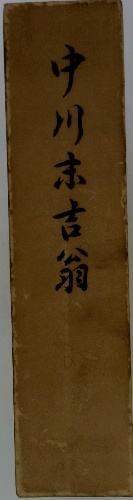 中川末吉翁